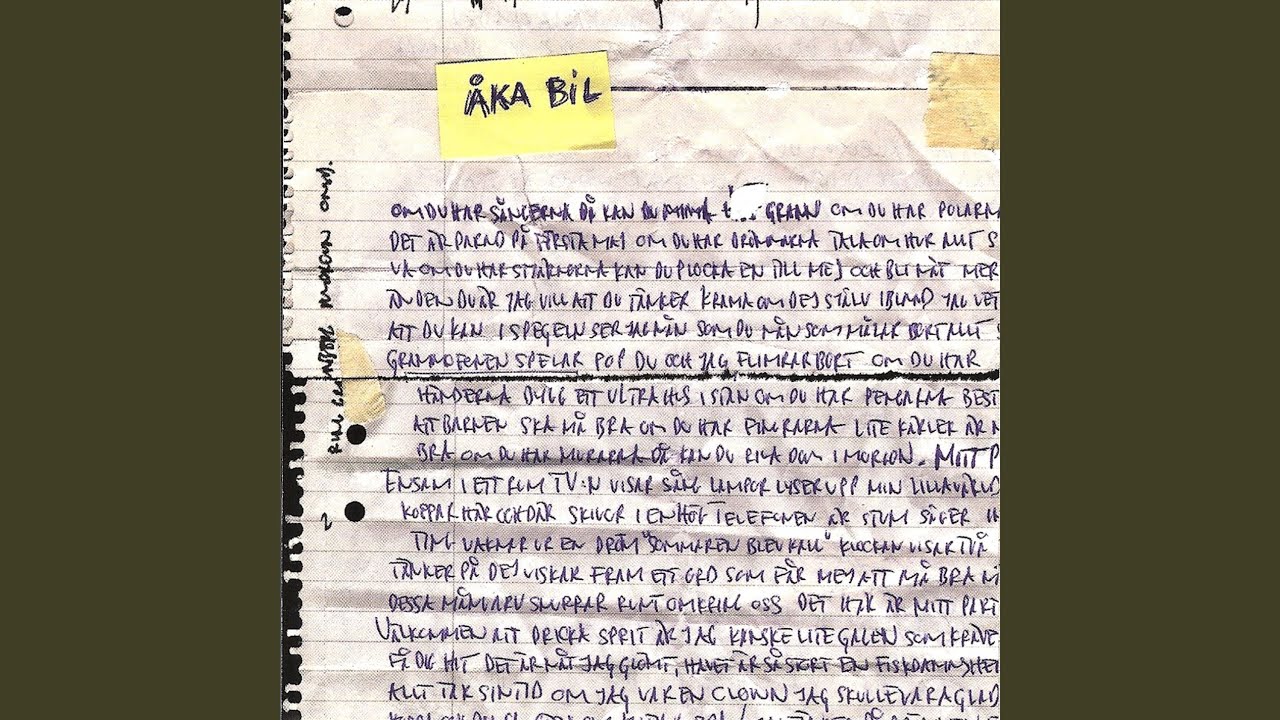 ÅKA BIL
OM DU HAR SÅNGERNA DÅ KAN DU MIMA GRANN OM DU HAR POLARNA
DET ÄR PARAD PÅ FÖRSTA MAJ OM DU HAR DRÖMMARNA TALA OM HUR ALLT S
VA OM DU HAR STJÄRNORNA KAN DU PLOCKA EN TILL MEJ OCH BLI NÅT MER
ÄN DEN DU ÄR JAG VILL ATT DU TÄNKER KRAMA OM DEJ SJÄLV IBLAND JAG VET
ATT DU KAN I SPEGELN SER JAG NÅN SOM DU NÅN SOM MÅLAR BORT ALLT S
GRAMMOFONEN SPELAR POP DU OCH JAG FLIMRAR BORT OM DU HAR
HÄNDERNA BYGG ETT ULTRAHUS I STAN OM DU HAR PENGARNA BEST
ATT BARNEN SKA MÅ BRA OM DU HAR FINGRARNA LITE KÄRLEK ÄR
BRA OM DU HAR MURARNA DÅ KAN DU RIVA DOM I MORGON. MITT P
ENSAM I ETT RUM TV:N VISAR SÅNT LAMPOR LYSER UPP MIN LILLA VÄRLD
KOPPAR HÄR OCH DÄR SKIVOR I EN HÖG TELEFONEN ÄR STUM SÄGER IN
TIM- VAKNAR UR EN DRÖM "SOMMAREN BLEV KALL" KLOCKAN VISAR TVÅ
TÄNKER PÅ DEJ VISKAR FRAM ETT ORD SOM FÅR MEJ ATT MÅ BRA
DESSA MÅNVARV SNURRAR RUNT OMKRING OSS DET HÄR ÄR MITT PART
VÄLKOMMEN ATT DRICKA SPRIT ÄR JAG KANSKE LITE GALEN SOM KRÄVE
FÅ DIG HIT DET ÄR NÅT JAG GLÖMT, HAVET ÄR SÅ STORT EN FISKDAMM
ALLT TAR SIN TID OM JAG VAR EN CLOWN JAG SKULLE VARA GLAD
2